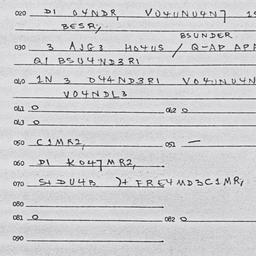 020 DI O4NDR, VO4UNU4N7 15
BESR,
BSUNDER
030 3 AJG3 HO4US / Q-AP APP
QI BSU4ND3RI
040 1N 3 O44ND3RI VO4UNU4N
VO4NDL3
041 0 042 0
043 0
050 C1MR2, 051 —
060 DI KO47MR2,
070 S+DU4B )+ FRE4MD3C1MR,
080
081 0 082 0
090